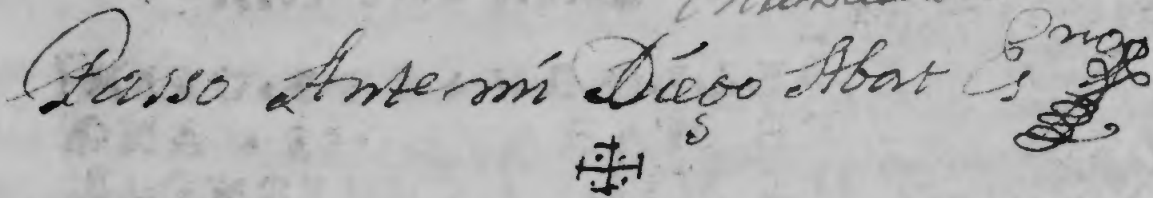 Passo Ante mí Díego Abat Es^no